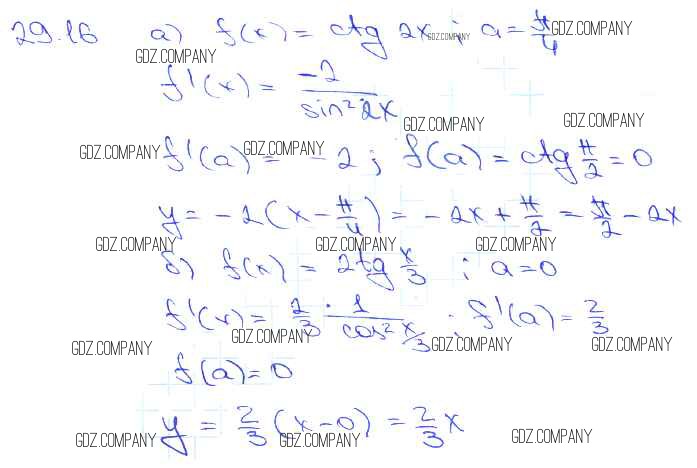 29.16 а) f(x) = ctg 2x ; a = π/4
GDZ.COMPANY GDZ.COMPANY GDZ.COMPANY
f'(x) = -2 / sin² 2x
GDZ.COMPANY GDZ.COMPANY
GDZ.COMPANY f'(a) = GDZ.COMPANY -2 ; f(a) = ctg π/2 = 0
y = -2(x - π/4) = -2x + π/2 = π/2 - 2x
GDZ.COMPANY GDZ.COMPANY GDZ.COMPANY
б) f(x) = 2tg x/3 ; a = 0
f'(x) = 2/3 · 1 / cos² x/3 ; f'(a) = 2/3
GDZ.COMPANY GDZ.COMPANY GDZ.COMPANY GDZ.COMPANY
f(a) = 0
y = 2/3 (x - 0) = 2/3 x
GDZ.COMPANY GDZ.COMPANY GDZ.COMPANY